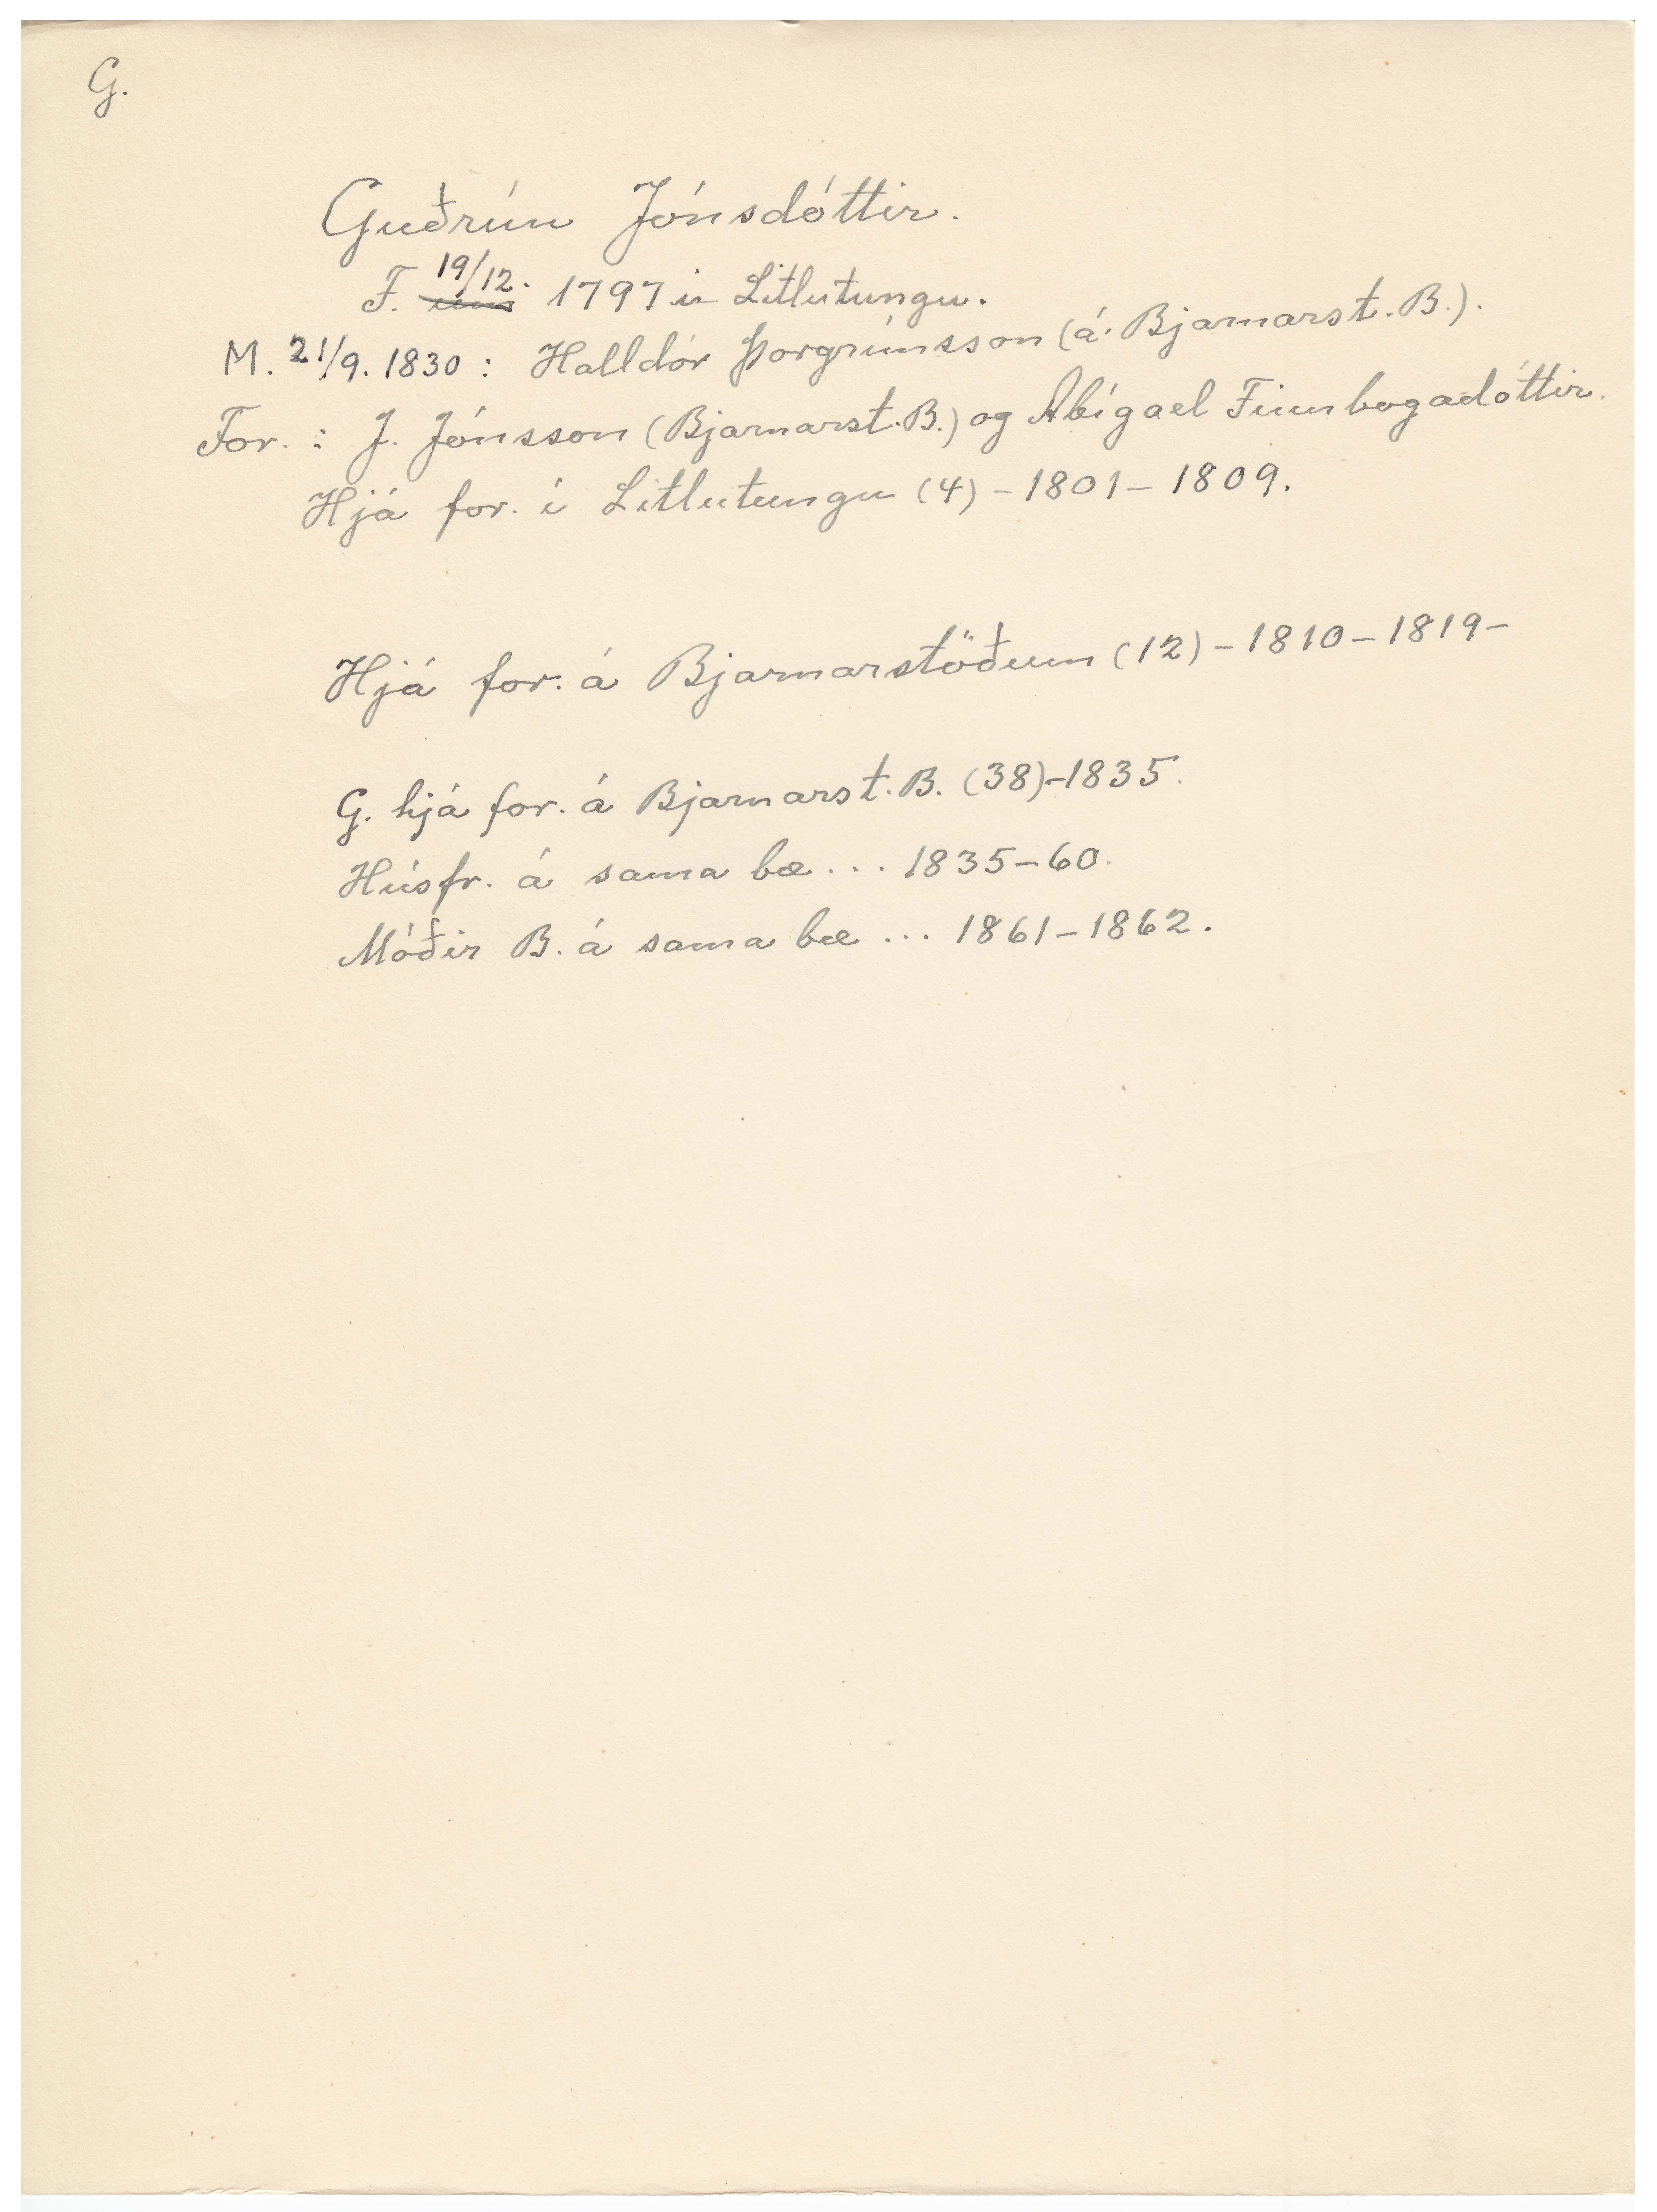 G.
Guðrún Jónsdóttir.
F. 19/12. 1797 í Litlutungu.
M. 21/9. 1830: Halldór Þorgrímsson (á Bjarnarst. B.).
For.: J. Jónsson (Bjarnarst. B.) og Abígael Finnbogadóttir.
Hjá for. í Litlutungu (4) – 1801 – 1809.
Hjá for. á Bjarnarstöðum (12) – 1810 – 1819 –
G. hjá for. á Bjarnarst. B. (38) – 1835.
Húsfr. á sama bæ ... 1835–60.
Móðir B. á sama bæ ... 1861–1862.